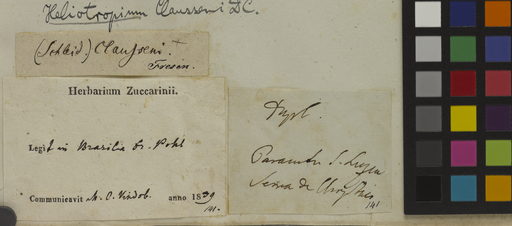 Heliotropium Clausseni DC.
(Schleid.) Clausseni. †
Fresen.
Herbarium Zuccarinii.
Legit in Brasilia Dr. Pohl
Communicavit M. C. Vindob. anno 1839
141.
Dupl.
Serra de
141